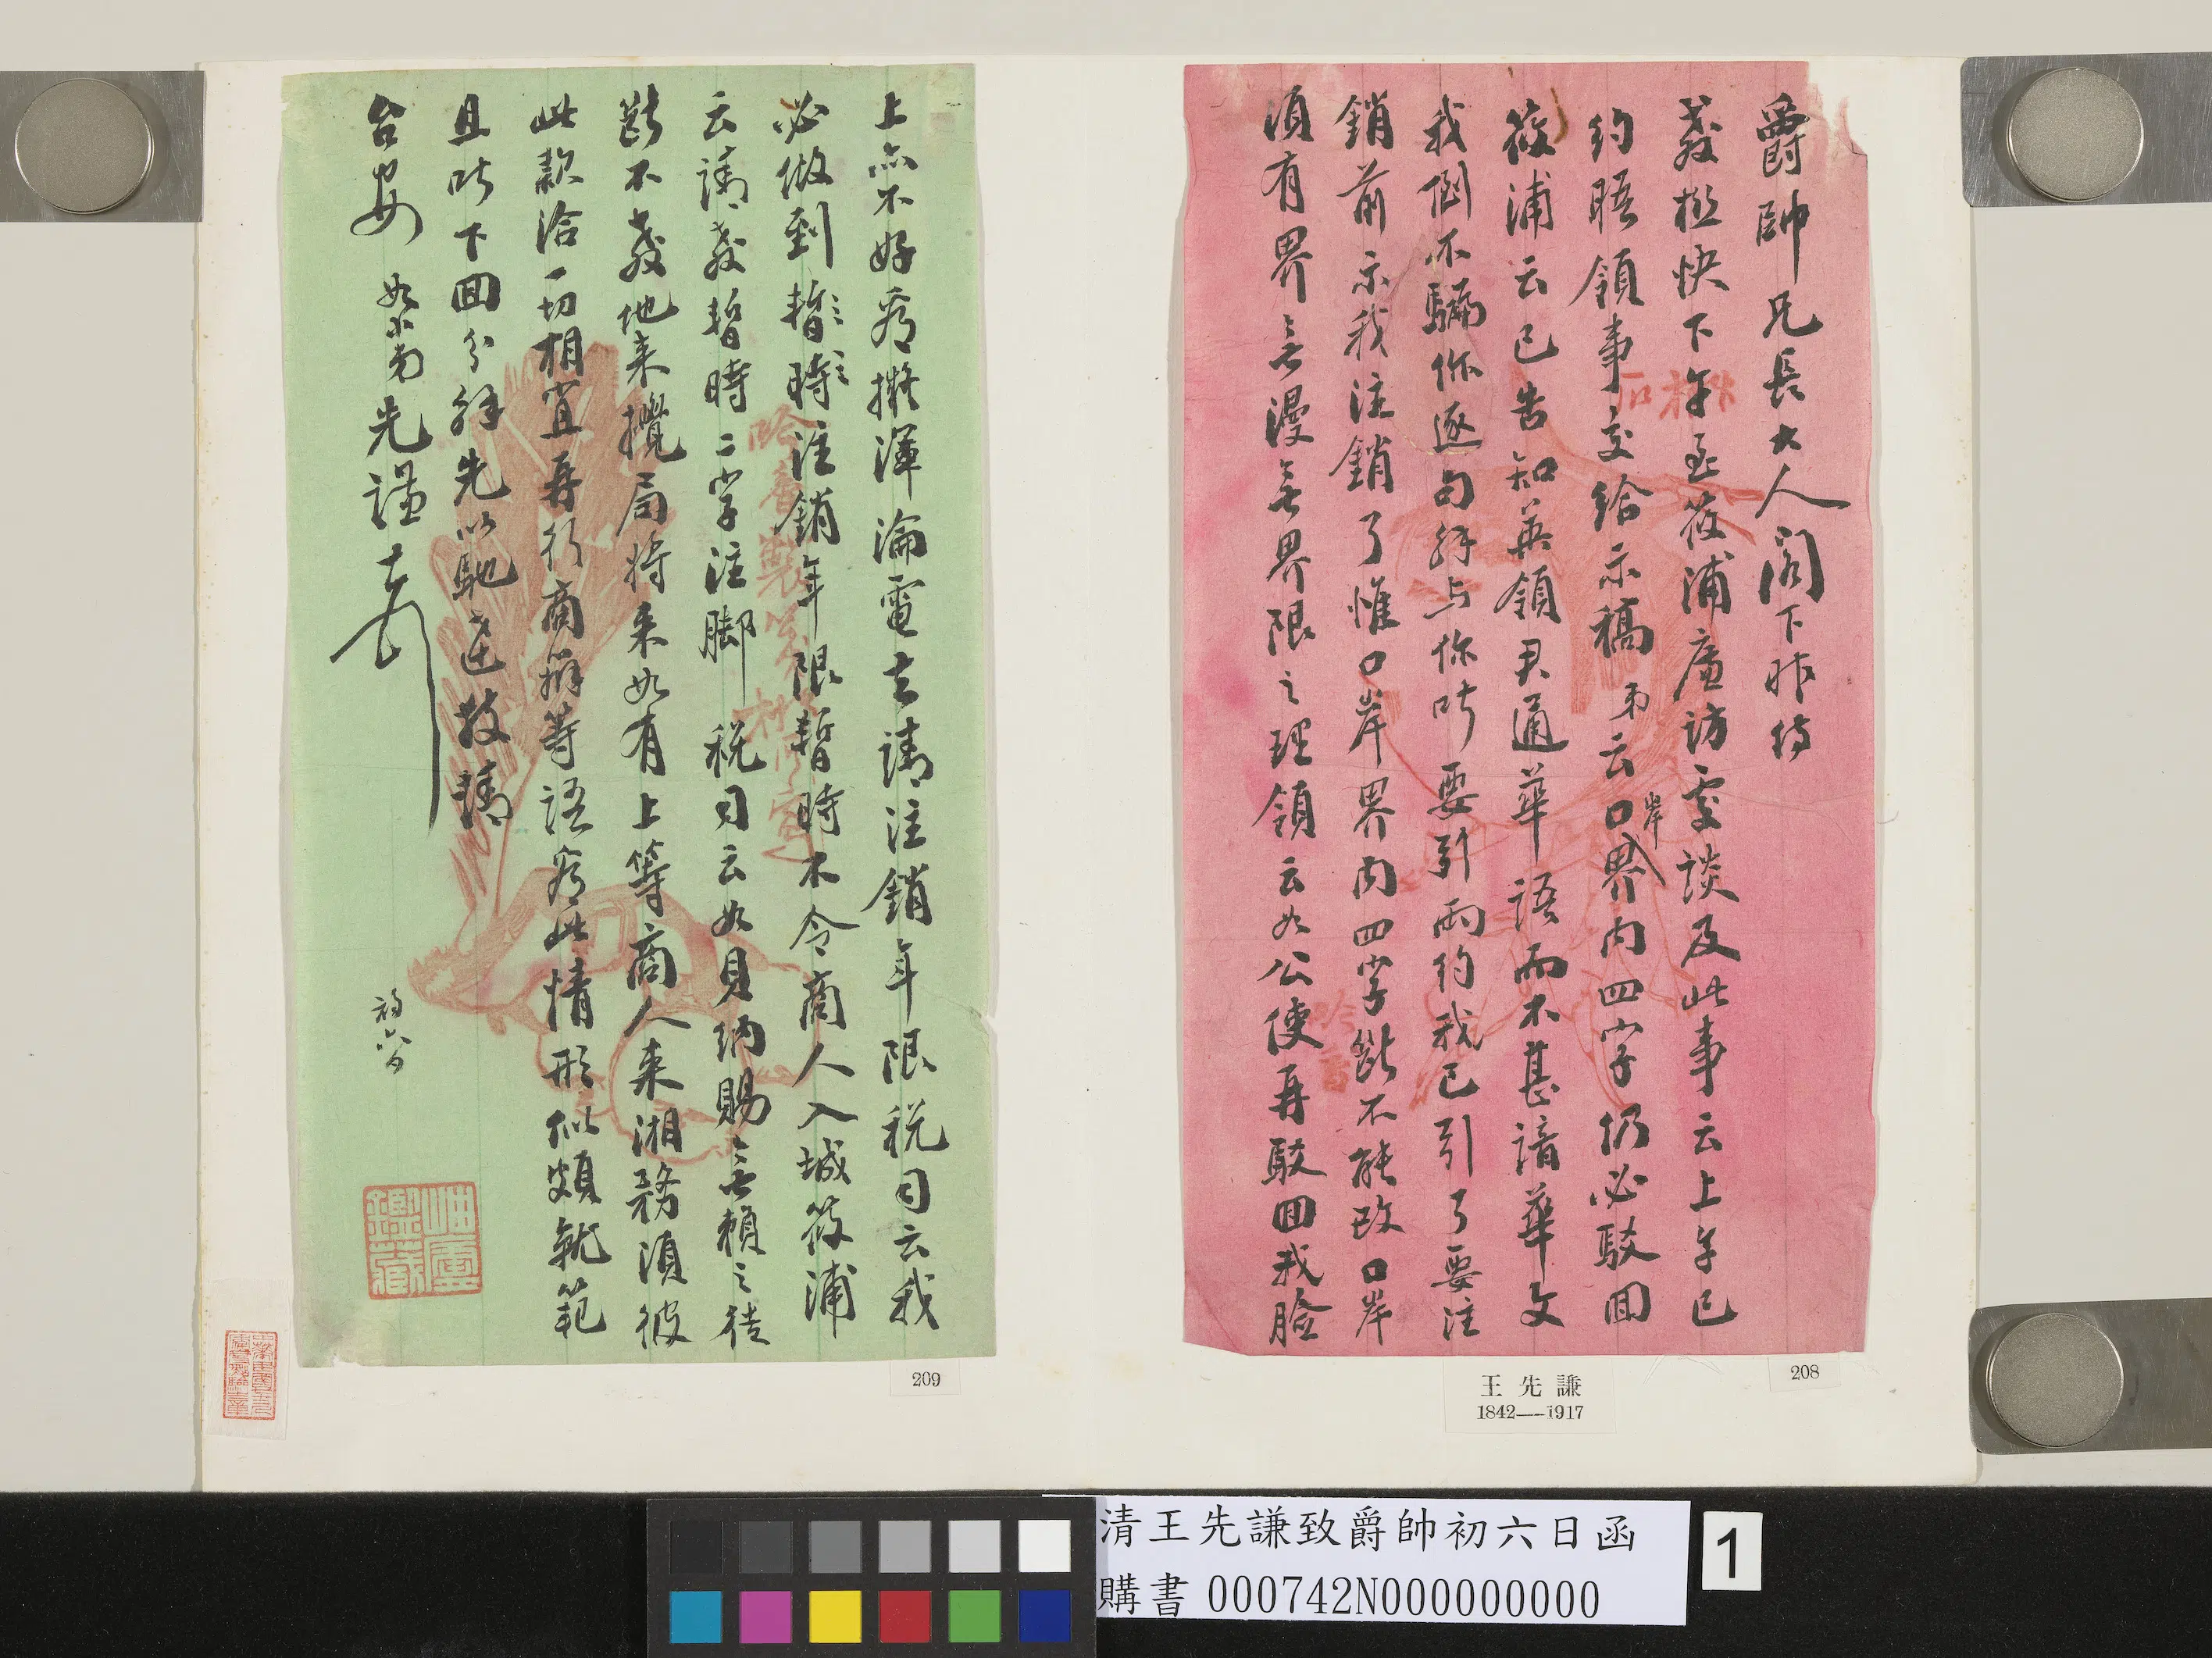 爵帥兄長大人閣下昨侍
教極快下午至筱浦廉訪處談及此事云上午已
約晤領事交給示稿弟云口岸界內四字仍必駁回
筱浦云已告知英領君通華語而不甚諳華文
我倒不騙你逐句解与你听要引兩約我已引了要注
銷前示我注銷了惟口岸界內四字斷不能改口岸
須有界無漫無界限之理領云如公使再駁回我臉
上亦不好看擬渾淪電去請注銷年限稅司云我
必做到暫時注銷年限暫時不令商人入城筱浦
云請教暫時二字注腳稅司云如見納賜無賴之徒
斷不教他來攪局將來如有上等商人來湘務須彼
此款洽一切相宜再行商辦等語看此情形似頗就範
且听下回分解先以馳達敬請
台安 如小弟先謙頓首
初六日
岫廬鑑藏
208
209
王先謙
1842—1917
清王先謙致爵帥初六日函
購書 000742N000000000
1